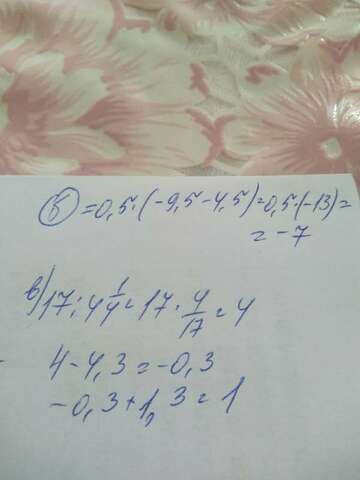 б) = 0,5·(-9,5-4,5)=0,5·(-13)=
= -7
в) 17 : 4 1/4 = 17 · 4/17 = 4
4 - 4,3 = -0,3
-0,3 + 1,3 = 1